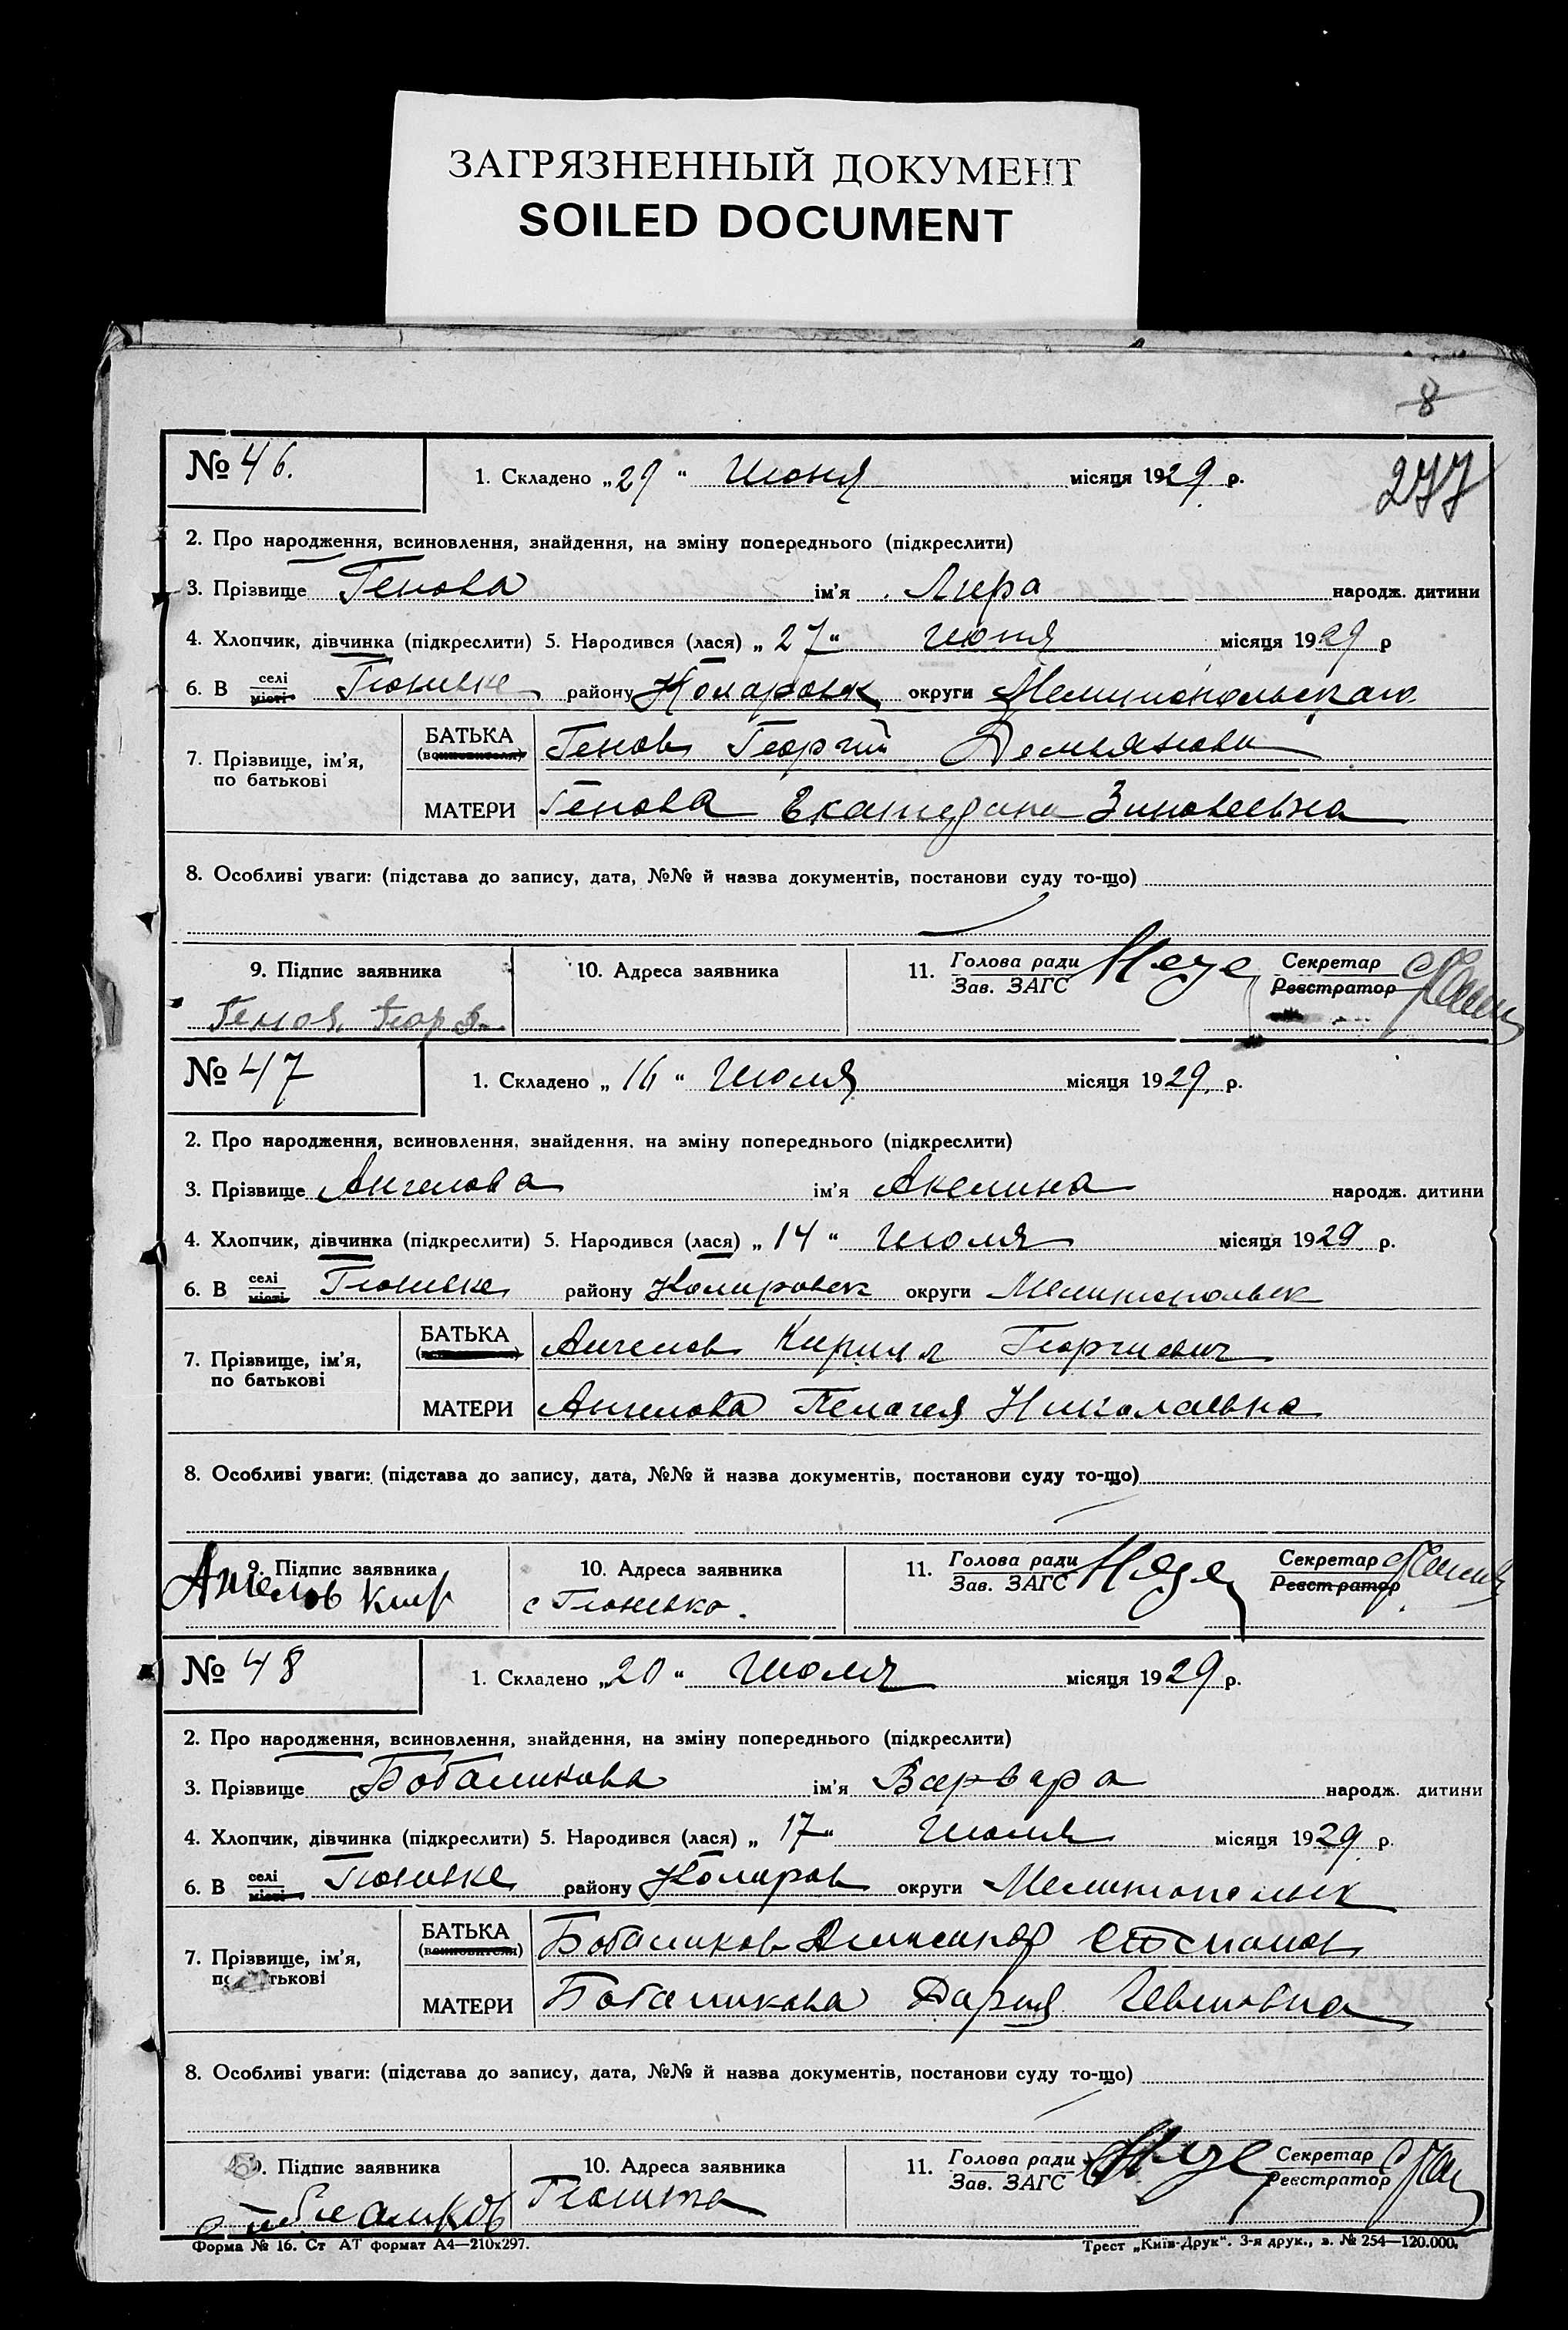 ЗАГРЯЗНЕННЫЙ ДОКУМЕНТ
SOILED DOCUMENT
8
277
№ 46.
1. Складено „29“ Июня місяця 1929 р.
2. Про народження, всиновлення, знайдення, на зміну попереднього (підкреслити)
3. Прізвище Генова ім'я Лира народж. дитини
4. Хлопчик, дівчинка (підкреслити) 5. Народився (лася) „27“ Июня місяця 1929 р
6. В селі місті Гюневке району Коларовск округи Мелитопольскаго
7. Прізвище, ім'я, по батькові
БАТЬКА Генов Георгий Демьянови
МАТЕРИ Генова Екатерина Зиновеевна
8. Особливі уваги: (підстава до запису, дата, №№ й назва документів, постанови суду то-що)
9. Підпис заявника
10. Адреса заявника
11. Голова ради Зав. ЗАГС
Секретар Реєстратор
Генов Геор
№ 47
1. Складено „16“ Июля місяця 1929 р.
2. Про народження, всиновлення, знайдення, на зміну попереднього (підкреслити)
3. Прізвище Ангелова ім'я Акелина народж. дитини
4. Хлопчик, дівчинка (підкреслити) 5. Народився (лася) „14“ Июля місяця 1929 р.
6. В селі місті Гюневке району Коларовск округи Мелитопольск
7. Прізвище, ім'я, по батькові
БАТЬКА Ангелов Кирилл Георгиевич
МАТЕРИ Ангелова Пелагея Николаевна
8. Особливі уваги: (підстава до запису, дата, №№ й назва документів, постанови суду то-що)
9. Підпис заявника
10. Адреса заявника
11. Голова ради Зав. ЗАГС
Секретар Реєстратор
Ангелов Кир
с Гюневка.
№ 48
1. Складено „20“ Июля місяця 1929 р.
2. Про народження, всиновлення, знайдення, на зміну попереднього (підкреслити)
3. Прізвище Бобаликова ім'я Варвара народж. дитини
4. Хлопчик, дівчинка (підкреслити) 5. Народився (лася) „17“ Июля місяця 1929 р.
6. В селі місті Гюневке району Коларов округи Мелитопольск
7. Прізвище, ім'я, по батькові
БАТЬКА Бобаликов Александр Стоманов
МАТЕРИ Бобаликова Дария
8. Особливі уваги: (підстава до запису, дата, №№ й назва документів, постанови суду то-що)
9. Підпис заявника
10. Адреса заявника
11. Голова ради Зав. ЗАГС
Секретар Реєстратор
Форма № 16. Ст АТ формат А4—210х297.
Трест „Київ-Друк“. 3-я друк., з. № 254—120.000.